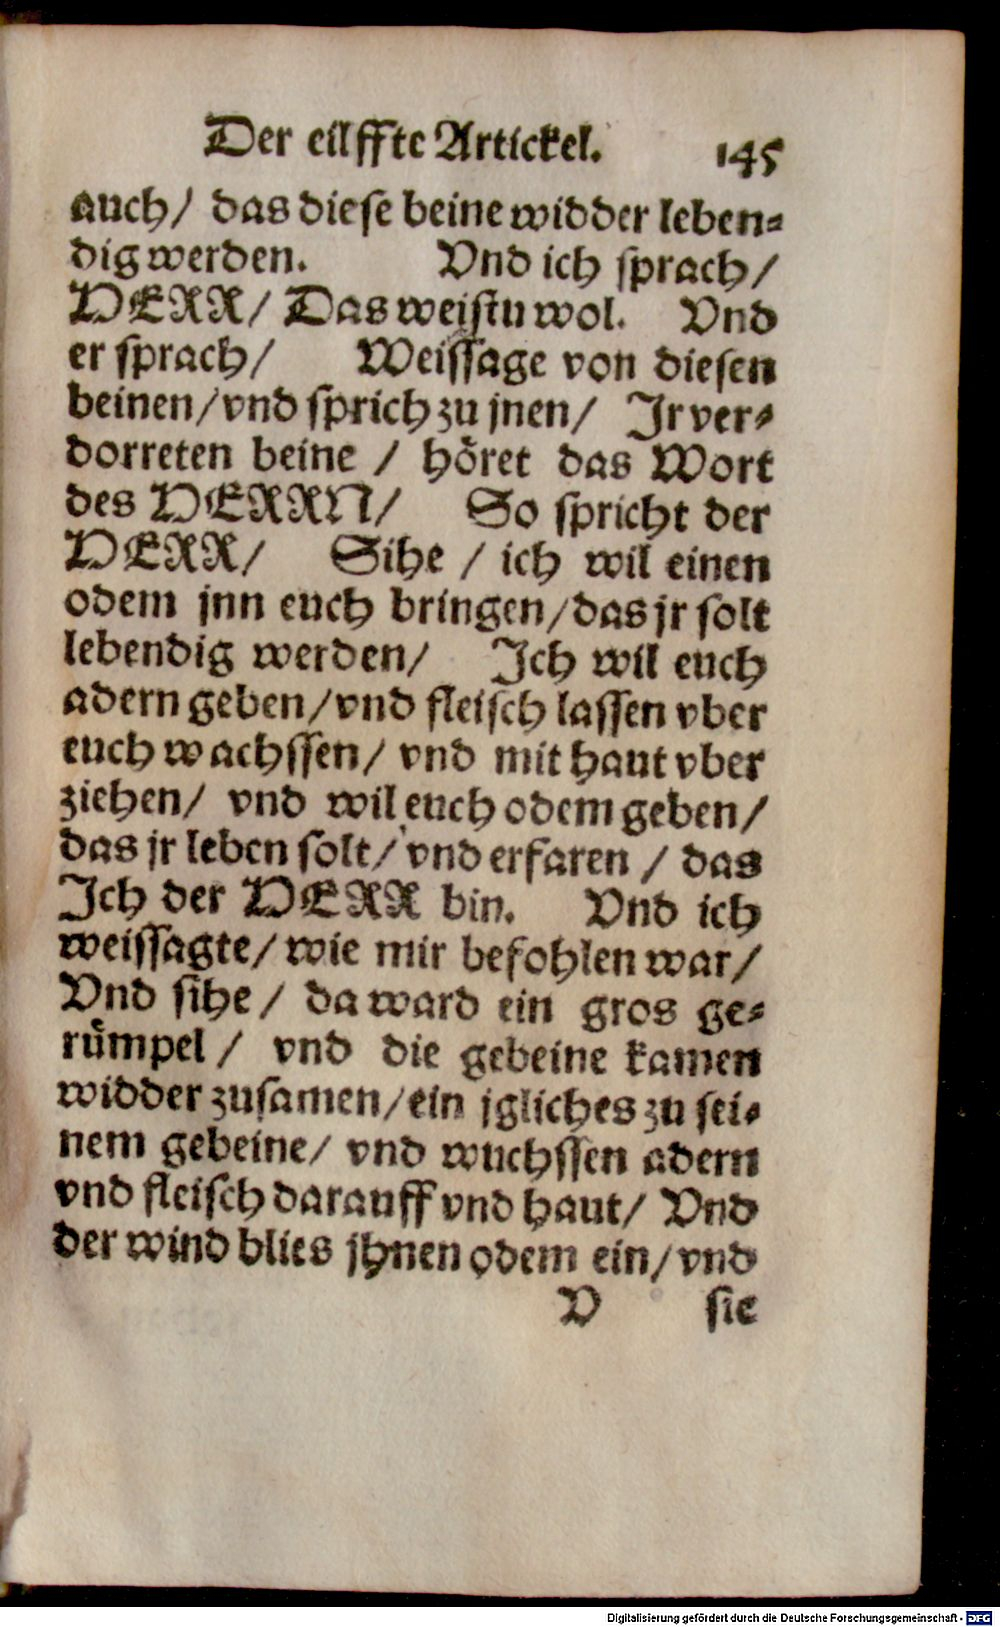 Der eilffte Artickel. 145
auch/ das diese beine widder leben⸗
dig werden. Vnd ich sprach/
HERR/ Das weistu wol. Vnd
er sprach/ Weissage von diesen
beinen/vnd sprich zu jnen/ Jr ver⸗
dorreten beine / höret das Wort
des HERRN/ So spricht der
HERR/ Sihe / ich wil einen
odem jnn euch bringen/das jr solt
lebendig werden/ Jch wil euch
adern geben/vnd fleisch lassen vber
euch wachssen/ vnd mit haut vber
ziehen/ vnd wil euch odem geben/
das jr leben solt/ vnd erfaren / das
Jch der HERR bin. Vnd ich
weissagte/ wie mir befohlen war/
Vnd sihe / da ward ein gros ge⸗
rümpel / vnd die gebeine kamen
widder zusamen/ein jgliches zu sei⸗
nem gebeine/ vnd wuchssen adern
vnd fleisch darauff vnd haut/ Vnd
der wind blies jhnen odem ein/vnd
V sie
Digitalisierung gefördert durch die Deutsche Forschungsgemeinschaft - DFG